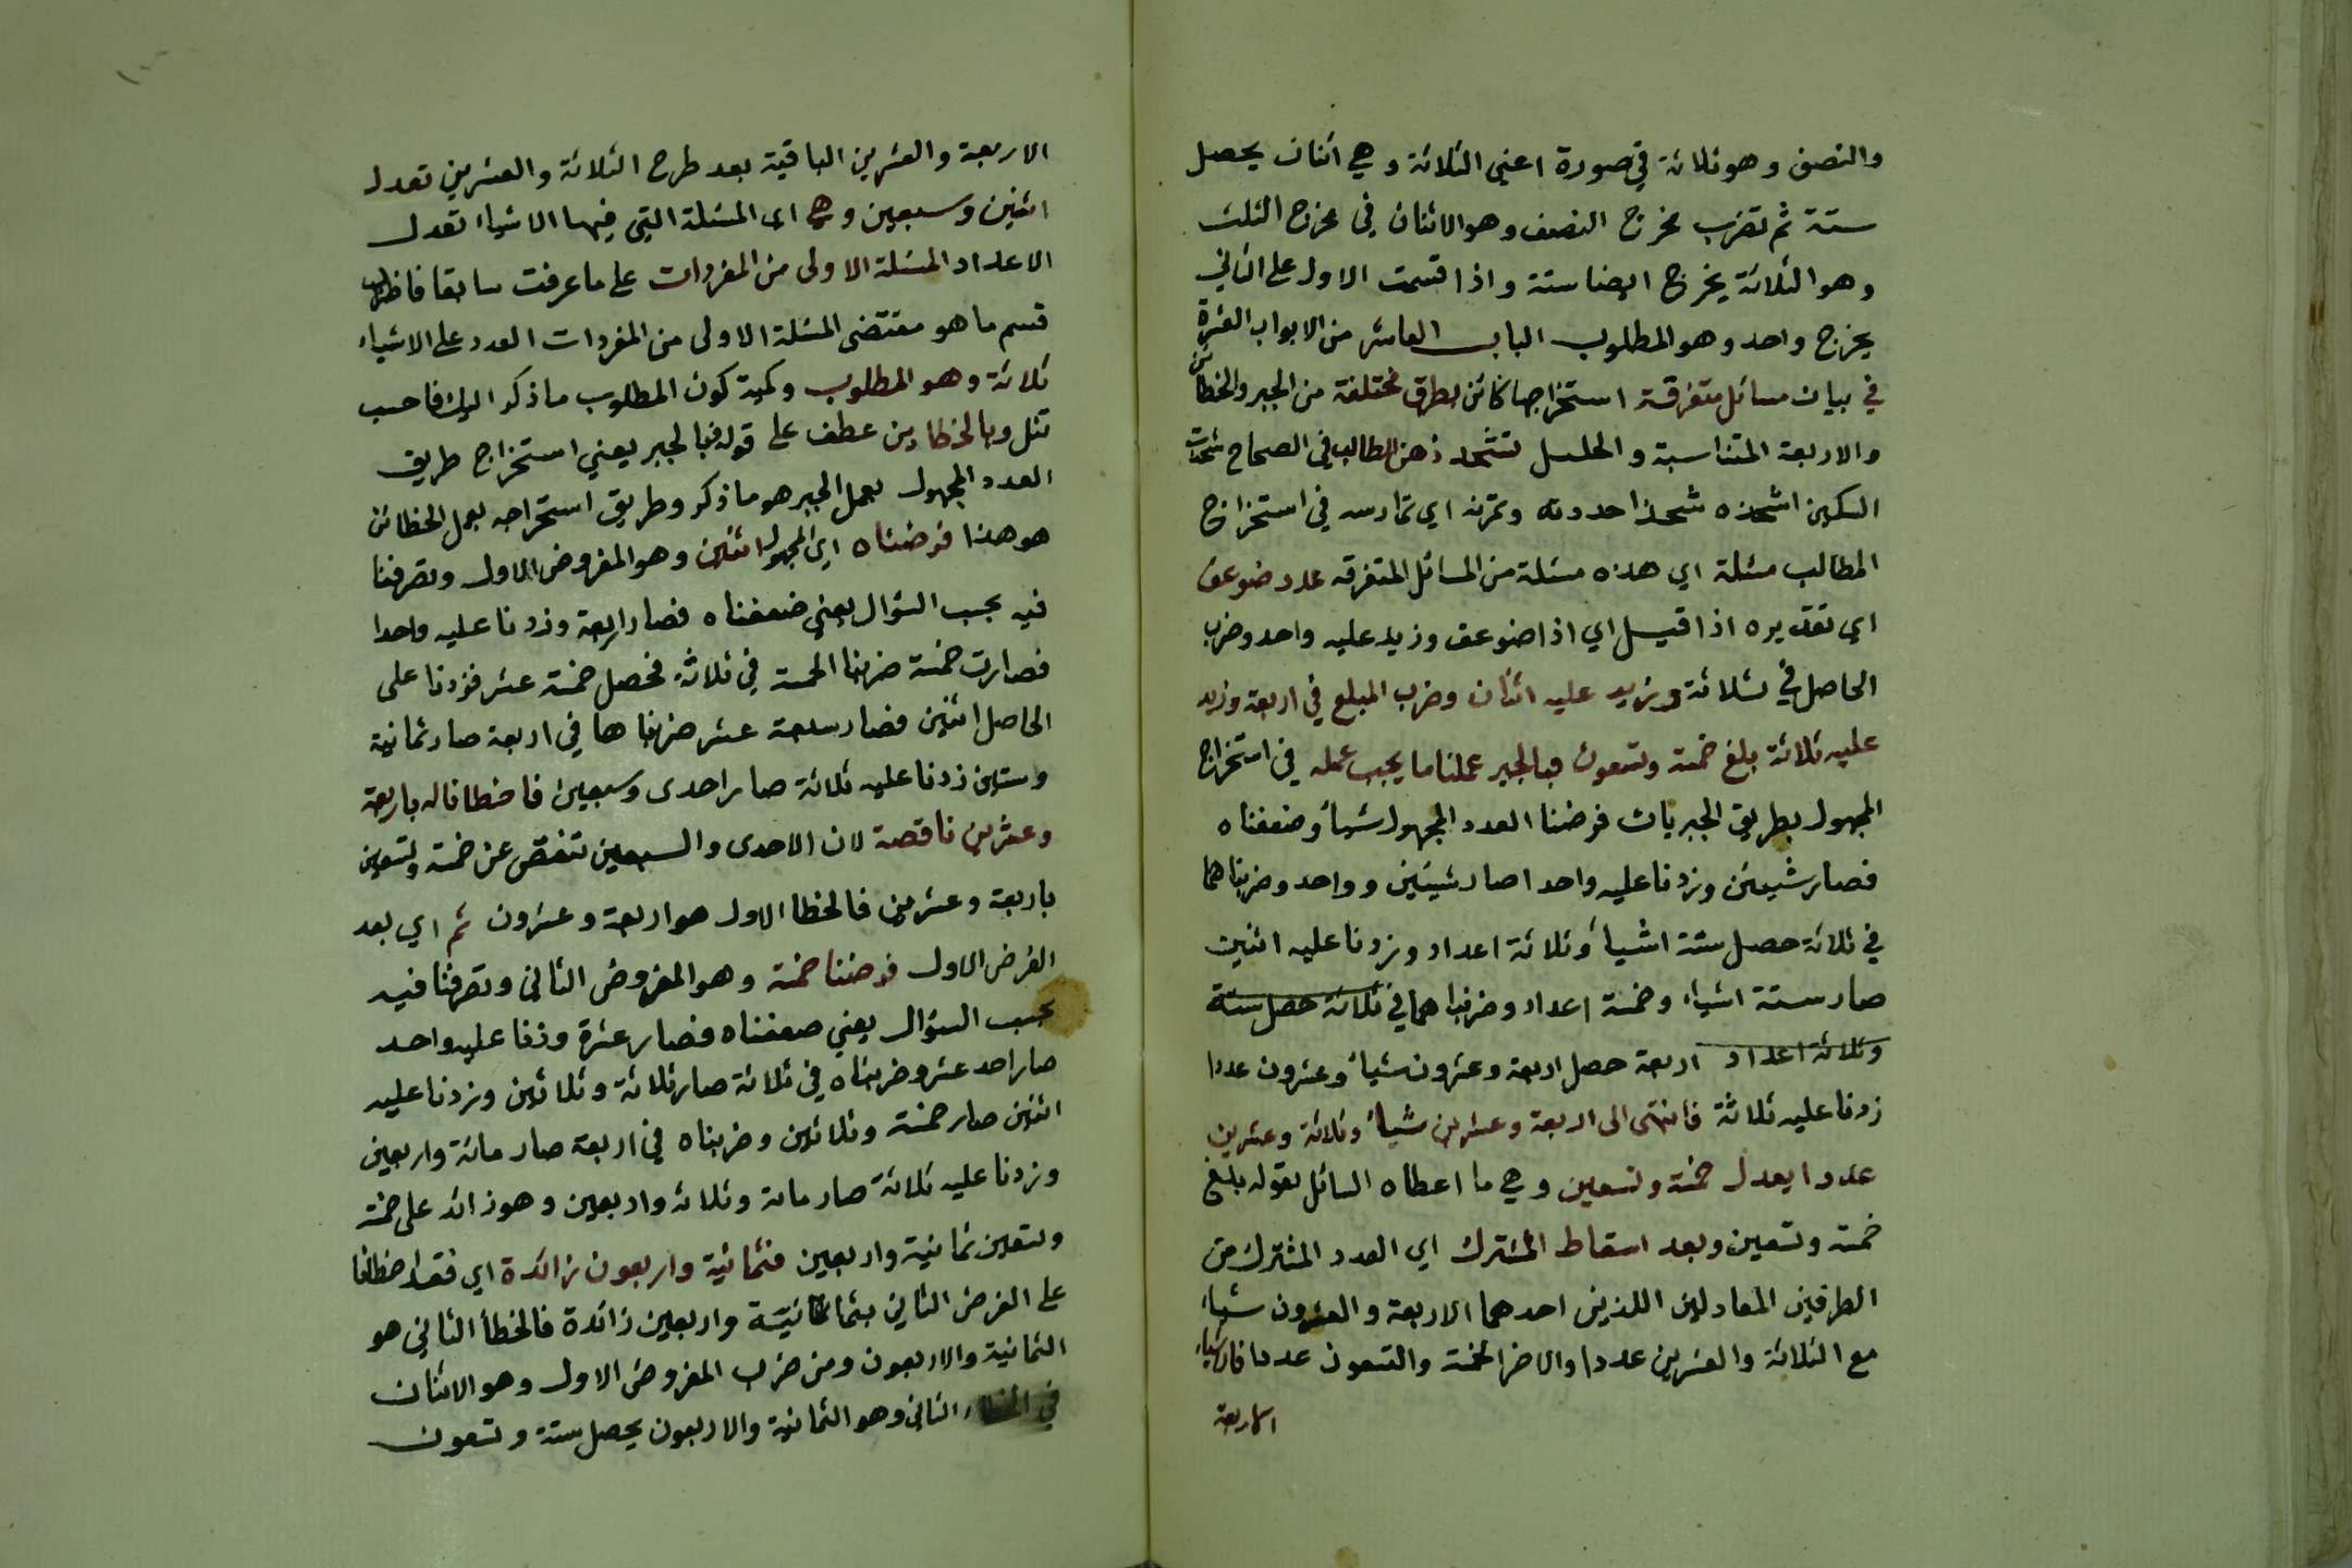 والنصف وهو ثلاثة في صورة اعني الثلاثة وهي اثنان يحصل
ستة ثم تضرب مخرج النصف وهو الاثنان في مخرج الثلث
وهو الثلاثة يخرج ايضا ستة واذا قسمت الاول على الثاني
يخرج واحد وهو المطلوب الباب العاشر من الابواب العشرة
في بيان مسائل متفرقة استخراجها كائن بطرق مختلفة من الجبر والخطائين
والاربعة المتناسبة والتحليل تشحذ ذهن الطالب في الصحاح شحذت
السكين اشحذه شحذا حددته وتمرنه اي تمارسه في استخراج
المطالب مسئلة اي هذه مسئلة من المسائل المتفرقه عدد ضوعف
اي تقديره اذا قيل اي اذا ضوعف وزيد عليه واحد وضرب
الحاصل في ثلاثة وزيد عليه اثنان وضرب المبلغ في اربعة وزيد
عليه ثلاثة بلغ خمسة وتسعون فبالجبر عملنا ما يجب عمله في استخراج
المجهول بطريق الجبر بان فرضنا العدد المجهول شيأ وضعفناه
فصار شيئين وزدنا عليه واحدا صار شيئين وواحد وضربناهما
في ثلاثة حصل ستة اشيأ وثلاثة اعداد وزدنا عليه اثنين
صار ستة اشياء وخمسة اعداد وضربناهما في ثلاثة حصل ستة
وثلاثة اعداد اربعة حصل اربعة وعشرون شيأ وعشرون عددا
زدنا عليه ثلاثة فانتهى الى اربعة وعشرين شيأ وثلاثة وعشرين
عددا يعدل خمسة وتسعين وهي ما اعطاه السائل بقوله بلغ
خمسة وتسعين وبعد اسقاط المشترك اي العدد المشترك من
الطرفين المعادلين اللذين احدهما الاربعة والعشرون شيأ
مع الثلاثة والعشرين عددا والاخر الخمسة والتسعون عددا فالاشياء
الاربعة
الاربعة والعشرين الباقية بعد طرح الثلاثة والعشرين تعدل
اثنين وسبعين وهي اى المسئلة التي فيها الاشياء تعدل
الاعداد المسئلة الاولى من المفردات على ما عرفت سابقا
قسم ما هو مقتضى المسئلة الاولى من المفردات العدد على الاشياء
ثلاثة وهو المطلوب وكمية كون المطلوب ما ذكر اليك فاحسب
تنل وبالخطاين عطف على قوله فبالجبر يعني استخراج طريق
العدد المجهول بعمل الجبر هو ما ذكر وطريق استخراجه بعمل الخطائن
هو هذا فرضناه اي المجهول اثنين وهو المفروض الاول وتصرفنا
فيه بحسب السؤال يعني ضعفناه فصار اربعة وزدنا عليه واحدا
فصارت خمسة ضربنا الخمسة في ثلاثة فحصل خمسة عشر فزدنا على
الحاصل اثنين فصار سبعة عشر ضربناها في اربعة صار ثمانية
وستين زدنا عليه ثلاثة صار احدى وسبعين فاخطانا له باربعة
وعشرين ناقصة لان الاحدى والسبعين تنقص عن خمسة وتسعين
باربعة وعشرين فالخطا الاول هو اربعة وعشرون ثم اي بعد
الفرض الاول فرضنا خمسة وهو المفروض الثاني وتصرفنا فيه
بحسب السؤال يعني ضعفناه فصار عشرة وزدنا عليه واحد
صار احد عشر وضربناه في ثلاثة صار ثلاثة وثلاثين وزدنا عليه
اثنين صار خمسة وثلاثين وضربناه في اربعة صار مائة واربعين
وزدنا عليه ثلاثة صار مائة وثلاثة واربعين وهو زائد على خمسة
وتسعين ثمانية واربعين فثمانية واربعون زائدة اي فقد اخطانا
على الفرض الثاني بثمانية واربعين زائدة فالخطأ الثاني هو
الثمانية والاربعون ومن ضرب المفروض الاول وهو الاثنان
في الخطاء الثاني وهو الثمانية والاربعون يحصل ستة وتسعون